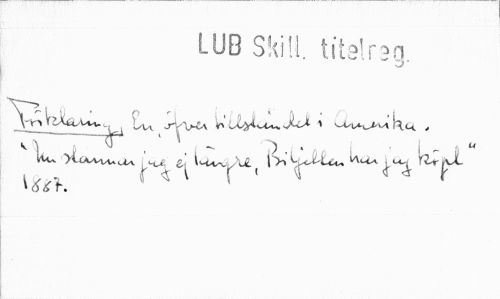 LUB Skill. titelreg.
Förklaring, En, öfver tillståndet i Amerika.
"Nu stannar jag ej längre, Biljetten har jag köpt"
1887.